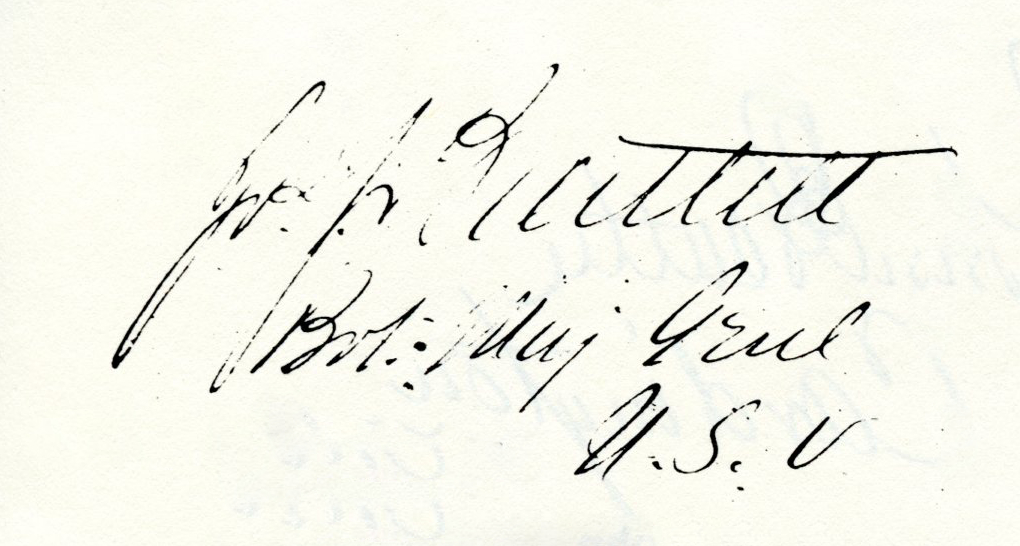 Jos. J. Bartlett
Bvt. Maj Genl
U. S. V